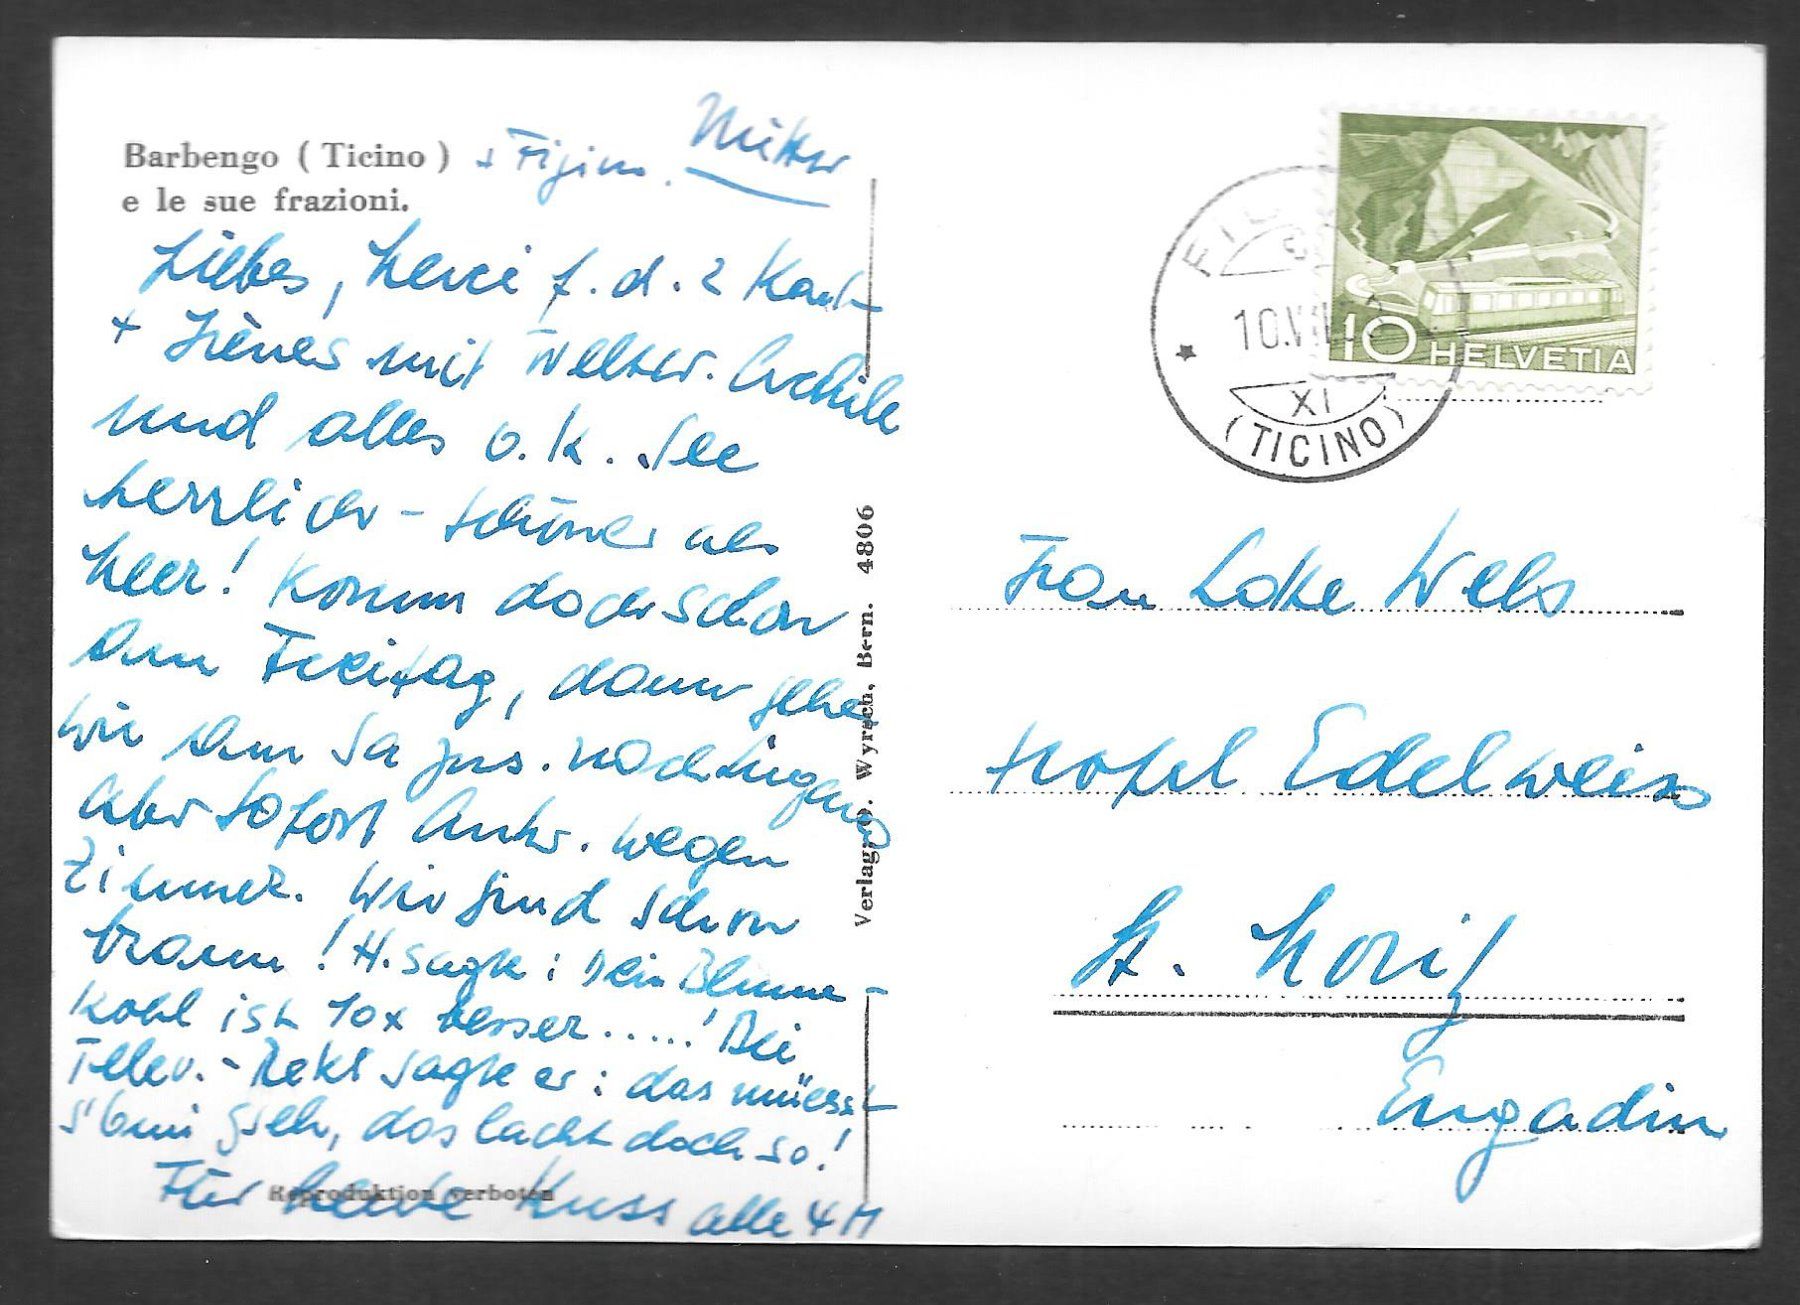 Barbengo (Ticino) + Figino. Mittw
e le sue frazioni.
Liebes, merci f. d. 2 Kart
+ Irènes mit Wetter. Achile
und alles o.k. See
herrlich - schöner als
Meer! Komm doch schon
am Freitag, dann gehen
wir am Sa zus. nach Lugano
Aber sofort Antw. wegen
Zimmer. Wir sind schon
braun! H. sagte: Dein Blume-
kohl ist 10x besser.....! Bei
Telev. - sagte er: das müesst
s'6mi gseh, das lacht doch so!
Für heute Kuss alle 4 M
Reproduktion verboten
Verlag: O. Wyrsch, Bern. 4806
10.V
XI
(TICINO)
10 HELVETIA
Frau Lotte Wels
Hotel Edelweiss
St. Moriz
Engadin